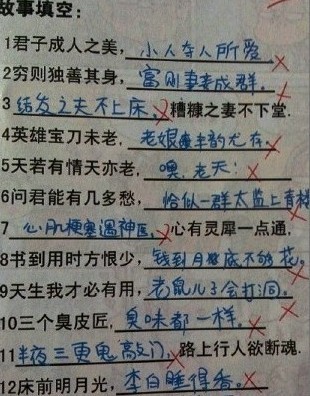 故事填空：
1君子成人之美，小人夺人所爱
2穷则独善其身，富则妻妾成群。
3结发之夫不上床，糟糠之妻不下堂.
4英雄宝刀未老，老娘丰韵尤存。
5天若有情天亦老，噢，老天！
6问君能有几多愁，恰似一群太监上青楼
7心肌梗塞遇神医，心有灵犀一点通，
8书到用时方恨少，钱到月底不够花。
9天生我才必有用，老鼠儿子会打洞。
10三个臭皮匠，臭味都一样。
11半夜三更鬼敲门，路上行人欲断魂.
12床前明月光，李白睡得香。